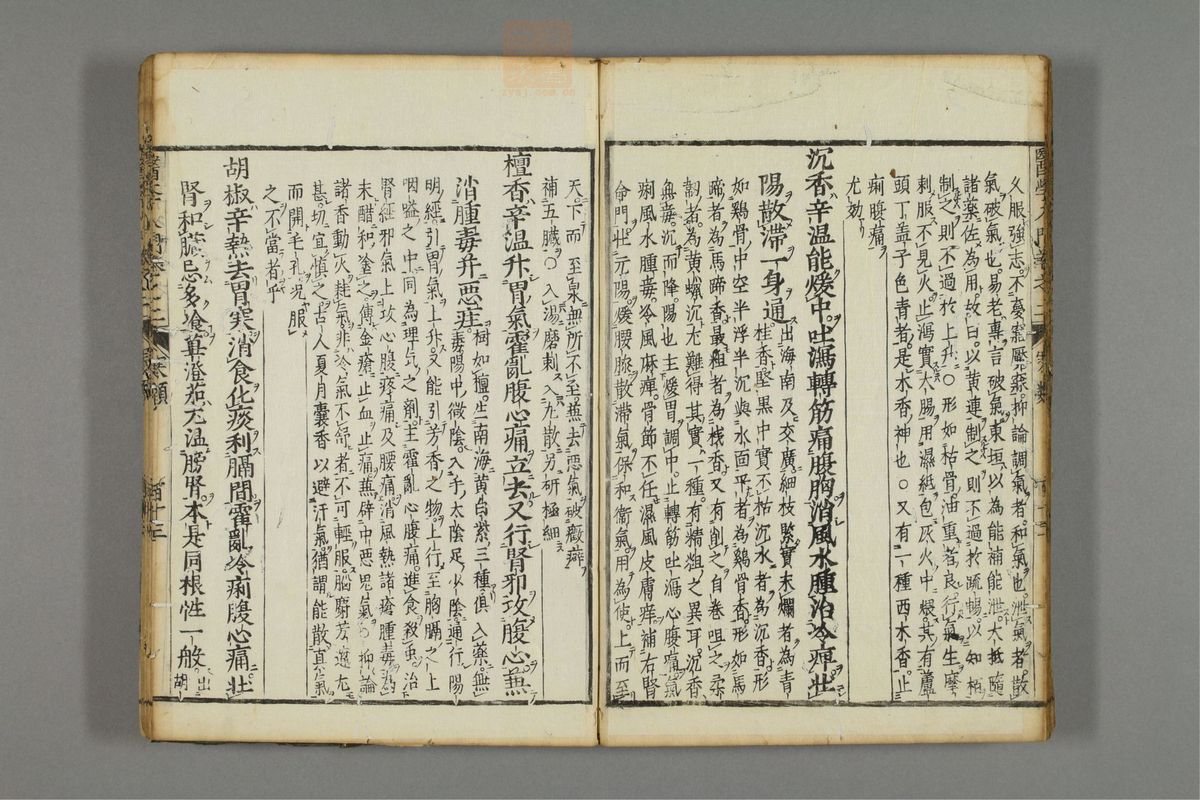 久服強志不夢寤魘寐抑論調氣者和氣也泄氣者散
氣破氣也易老專言破氣東垣以為能補能泄大抵隨
諸藥佐為用故曰以黃連制之則不過於疏暢以知栢
制之則不過於上升○形如枯骨油重者良行氣生磨
刺服不見火止瀉實大腸用濕紙包灰火中煨其有蘆
頭丁盖子色青者是木香神也○又有一種西木香止
痢腹痛
尤効
沉香辛温能煖中吐瀉轉筋痛腹胸消風水腫治冷痺壯
陽散滯一身通
出海南及交廣細枝緊實未爛者為青
桂香堅黑中實不枯沉水者為沉香形
如鷄骨中空半浮半沉與水面平者為鷄骨香形如馬
蹄者為馬蹄香最粗者為棧香又有削之自卷咀之柔
韌者為黃蠟沉尤難得其實一種有精粗之異耳沉香
無毒沉而降陽也主煖胃調中止轉筋吐瀉心腹痛氣
痢風水腫毒冷風麻痺骨節不任濕風皮膚痒補右腎
命門壯元陽煖腰膝散滯氣保和衞氣用為使上而至
天下而至泉無所不至兼去惡氣破癥癖
補五臟○入湯磨刺入丸散另研極細
檀香辛温升胃氣霍亂腹心痛立去又行腎邪攻腹心兼
消腫毒并惡疰
樹如檀生南海黃白紫三種俱入藥無
毒陽中微陰入手太陰足少陰通行陽
明經引胃氣上升又能引芳香之物上行至胸膈之上
咽嗌之中同為理氣之劑主霍亂心腹痛進食殺虫治
腎經邪氣上攻心腹疼痛及腰痛消風熱諸瘡腫毒為
末醋和塗之傅金瘡止血止痛兼辟中惡鬼氣○抑論
諸香動火耗氣非冷氣不舒者不可輕服腦麝芳遼尤
甚切宜慎之古人夏月囊香以避汗氣猶謂能散真氣
而開毛孔况服
之不當者乎
胡椒辛熱去胃寒消食化痰利膈間霍亂冷痢腹心痛壯
腎和臟忌多飡蓽澄茄尤温膀腎本是同根性一般
出
胡